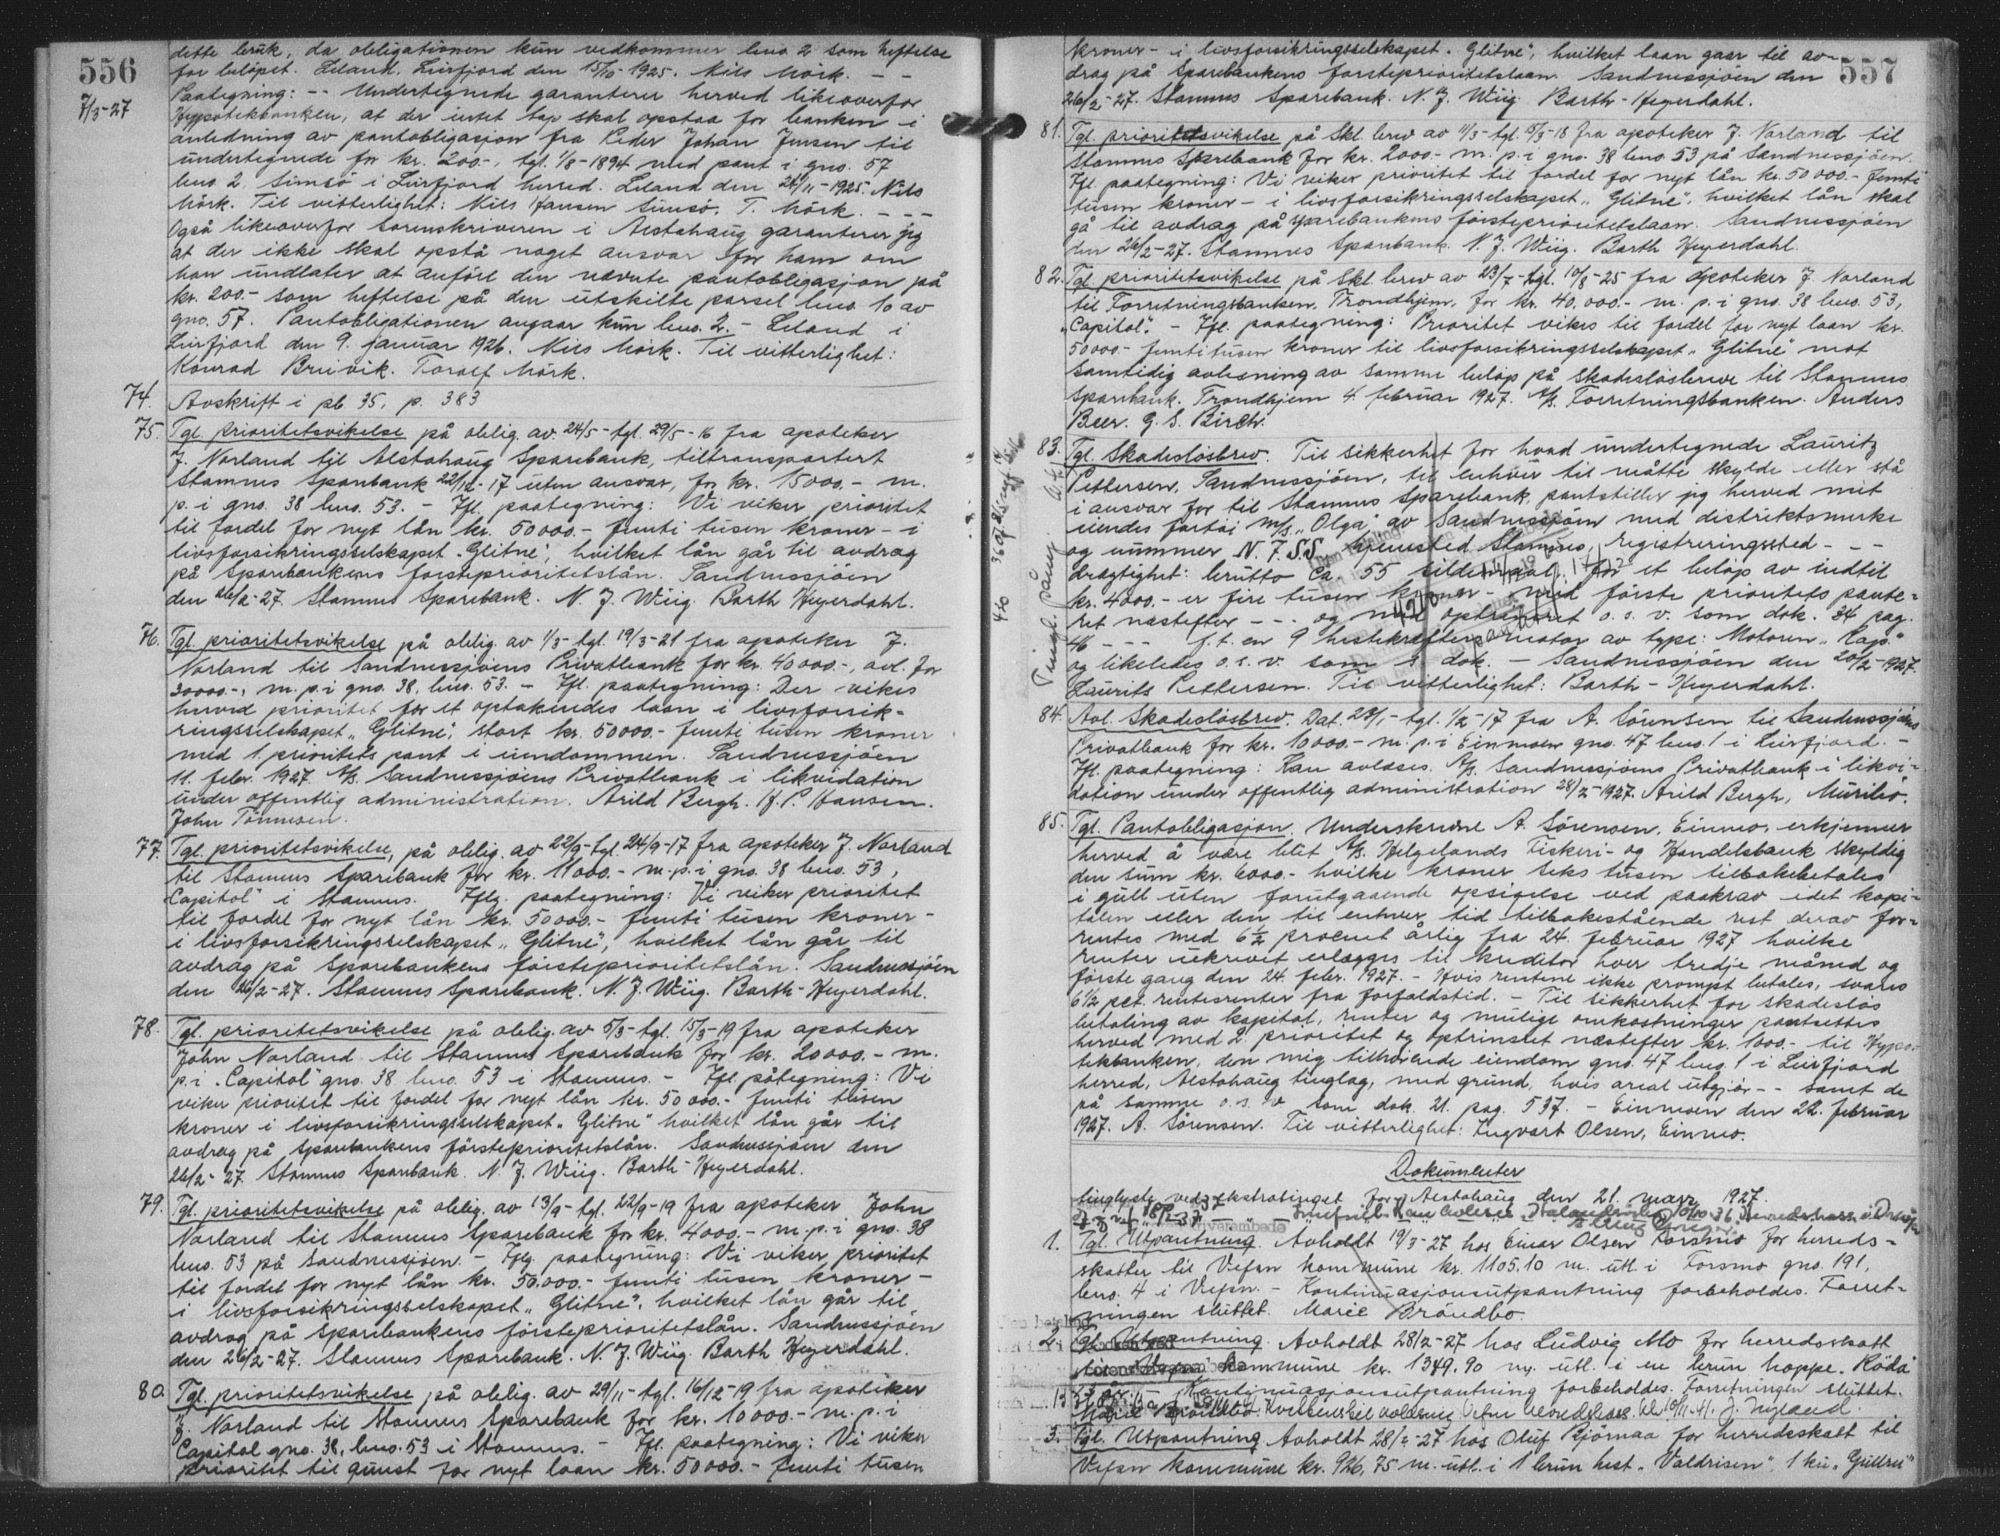 556
7/3-27
dette bruk, da obligationen kun vedkommer bno 2 som heftelse
for beløpet. Leland, Leirfjord den 15/10 1925. Nils Mörk. - -
Paategning: -- Undertegnede garanterer herved likeoverfor
Hypotekbanken, at der intet tap skal opstaa for banken i
anledning av pantobligasjon fra Peder Johan Jensen til
undertegnede for kr. 200.-, tgl. 1/8-1894 med pant i gno. 57
bno 2 Simsö i Leirfjord herred. Leland den 24/11-1925 Nils
Mörk. Til vitterlighet: Nils Jansen Simsö. T. Mörk. - - -
Også likeoverfor sorenskriveren i Alstahaug garanterer jeg
at der ikke skal opstå noget ansvar for ham om
han undlater at anföre den nævnte pantobligasjon på
kr. 200.- som heftelse på den utskilte parsel bno. 10 av
gno. 57. Pantobligationen angaar kun bno. 2. - Leland i
Leirfjord den 9. januar 1926. Nils Mörk. Til vitterlighet:
Konrad Breivik. Toralf Mörk.
74. Avskrift i pb. 35, p. 383
75. Tgl. prioritetsvikelse på oblig. av 24/5-tgl. 29/5-16 fra apoteker
J. Norland til Alstahaug Sparebank, tiltransportert
Stamnes Sparebank 22/12-17 uten ansvar, for kr. 15000.- m.
p. i gno. 38 bno. 53. - Ifl. paategning: Vi viker prioritet
til fordel for nyt lån kr. 50000.- femti tusen kroner - i
livsforsikringsselskapet "Glitne", hvilket lån går til avdrag
på Sparebankens försteprioritetslån. Sandnessjöen
den 26/2-27. Stamnes Sparebank. N. J. Wiig. Barth Heyerdahl.
76. Tgl. prioritetsvikelse på oblig. av 1/3-tgl. 19/3-21 fra apoteker J.
Norland til Sandnessjöens Privatbank for kr. 40000.-, avl. for
20000.-, m. p. i gno. 38, bno. 53. - Ifl. paategning: Der vikes
herved prioritet for et optakendes laan i livsforsik-
ringsselskapet "Glitne", stort kr. 50000.- femti tusen kroner
med 1. prioritets pant i eiendommen. Sandnessjöen
11. febr. 1927. A/S. Sandnessjöens Privatbank i likvidation
under offentlig administration. Arild Bergh. H. P. Hansen.
John Tönnesen.
77. Tgl. prioritetsvikelse, på oblig. av 22/9-tgl. 24/9-17 fra apoteker J. Norland
til Stamnes Sparebank for kr. 11000.- m. p. i gno. 38 bno. 53,
"Capitol" i Stamnes. Iflg. paategning: Vi viker prioritet
til fordel for nyt lån kr. 50000.- femti tusen kroner -
i livsforsikringsselskapet "Glitne", hvilket lån går til
avdrag på Sparebankens försteprioritetslån. Sandnessjöen
den 26/2-27. Stamnes Sparebank. N. J. Wiig. Barth-Heyerdahl.
78. Tgl. prioritetsvikelse på oblig. av 5/3-tgl. 15/3-19 fra apoteker
John Norland til Stamnes Sparebank for kr. 20000.- m.
p. i "Capitol" gno. 38 bno. 53 i Stamnes. - Ifl. påtegning: Vi
viker prioritet til fordel for nyt lån kr. 50000.- femti tusen
kroner i livsforsikringsselskapet "Glitne" hvilket lån går til
avdrag på Sparebankens försteprioritetslån. Sandnessjöen den
26/2-27. Stamnes Sparebank. N. J. Wiig. Barth-Heyerdahl.
79. Tgl. prioritetsvikelse på oblig. av 13/9-tgl. 22/9-19 fra apoteker John
Norland til Stamnes Sparebank for kr. 4000.- m. p. i gno. 38
bno. 53 på Sandnessjöen. - Iflg. paategning: Vi viker prioritet
til fordel for nyt lån kr. 50.000.- femti tusen kroner -
i livsforsikringsselskapet "Glitne", hvilket lån går til
avdrag på Sparebankens försteprioritetslån. Sandnessjöen
den 26/2-27. Stamnes Sparebank. N. J. Wiig. Barth Heyerdahl.
80. Tgl. prioritetsvikelse på oblig. av 29/11-tgl. 16/12-19 fra apoteker
J. Norland til Stamnes Sparebank for kr. 10000.- m. p. i
Capitol gno. 38, bno. 53 i Stamnes. - Ifl. paategning: Vi viker
prioritet til gunst for nyt laan kr. 50000.- femti tusen
557
kroner - i livsforsikringsselskapet "Glitne", hvilket laan gaar til av-
drag på Sparebankens försteprioritetslaan. Sandnessjöen den
26/2-27. Stamnes Sparebank. N. J. Wiig. Barth-Heyerdahl.
81. Tgl. prioritetsvikelse på Skl. brev av 11/3-tgl. 15/3-18 fra apoteker J. Norland til
Stamnes Sparebank for kr. 2000.- m. p. i gno. 38 bno 53 på Sandnessjöen.
Ifl. paategning: Vi viker prioritet til fordel for nyt lån kr. 50000.- femti
tusen kroner - i livsforsikringsselskapet "Glitne", hvilket lån skal
gå til avdrag på Sparebankens försteprioritetslaan. Sandnessjöen
den 26/2-27. Stamnes Sparebank. N. J. Wiig. Barth Heyerdahl.
82. Tgl. prioritetsvikelse på Skl. brev av 23/7-tgl. 10/8-25 fra apoteker J. Norland
til Forretningsbanken, Trondhjem, for kr. 40.000.- m. p. i gno. 38 bno. 53,
"Capitol". - Ifl. paategning: Prioritet vikes til fordel for nyt laan kr.
50000.- femti tusen kroner til livsforsikringsselskapet "Glitne" mot
samtidig avlesning av samme belöp på skadeslösbreve til Stamnes
Sparebank. Trondhjem 4. februar 1927. A/S. Forretningsbanken. Anders
Beer. G. S. Birch.
83. Tgl. Skadeslösbrev. Til sikkerhet for hvad undertegnede Lauritz
Pettersen, Sandnessjöen, til enhver tid måtte skylde eller stå
i ansvar for til Stamnes Sparebank, pantstiller jeg herved mit
eiendes fartöi M/S. "Olga" av Sandnessjöen med distriktsmerke
og nummer N. 7 SS, hjemsted Stamnes, registreringssted - - -
drægtighet: brutto ca. 55 for et belöp av indtil
kr. 4000.- er fire tusen kroner - med förste prioritets pante-
ret næstefter - - - og med optrinsret o. s. v. som dok. 34 pag.
46 - - - f. t. en 9 hestekræfters motor av type: Motoren "Rapp"
og likeledes o. s. v. som dok. - Sandnessjöen den 20/2-1927.
Laurits Pettersen. Til vitterlighet: Barth-Heyerdahl.
84. Avl. Skadeslösbrev. Dat. 23/1-tgl. 1/2-17 fra A. Sörensen til Sandnessjöens
Privatbank for kr. 10000.- m. p. i Einmoen gno. 47 bno. 1 i Leirfjord. -
Ifl. paategning: Kan avlæses. A/S. Sandnessjöens Privatbank i likvi-
dation under offentlig administration 28/2-1927. Arild Bergh,
85. Tgl. Pantobligasjon. Underskrevne A. Sörensen, Einmo, erkjenner
herved å være blit A/S. Helgelands Fiskeri- og Handelsbank skyldig
den sum kr. 6000.- hvilke kroner seks tusen tilbakebetales
i gull uten forutgaaende opsigelse ved paakrav idet kapi-
talen eller den til enhver tid tilbakestående rest derav for-
rentes med 6½ procent årlig fra 24. februar 1927 hvilke
renter ukrevet erlægges til kreditor hver tredje måned og
förste gang den 24. febr. 1927. - Hvis rentene ikke prompt betales, svares
6½ pct. rentesrenter fra forfaldstid. - Til sikkerhet for skadeslös
betaling av kapital, renter og mulige omkostninger pantsettes
herved med 2. prioritet og optrinsret næstefter kr. 1000.- til Hypo-
tekbanken, den mig tilhörende eiendom gno. 47 bno. 1 i Leirfjord
herred, Alstahaug tinglag, med grund, hvis areal utgjör - - samt de
på samme o. s. v. som dok. 21. pag. 537. - Einmoen den 22. februar
1927. A. Sörensen. Til vitterlighet: Ingvart Olsen, Einmo.
Dokumenter
tinglyste ved ekstratinget for Alstahaug den 21. mars 1927.
1. Tgl. Utpantning. Avholdt 19/3-27 hos Einar Olsen Forsmo for herreds-
skatter til Vefsn kommune kr. 1105.10 m. utl. i Forsmo gno. 191,
bno. 4 i Vefsn. - Kontinuasjonsutpantning forbeholdes. Forret-
ningen sluttet. Marie Bröndbo.
2. Tgl. Utpantning. Avholdt 28/2-27 hos Ludvig Mo for herredsskatt
kommune kr. 1349.90 m. utl. i en brun hoppe "Röda"
Kontinuasjonsutpantning forbeholdes. Forretningen sluttet.
3. Tgl. Utpantning. Avholdt 28/2-27 hos Oluf Björnaa for herredsskatt til
Vefsn kommune kr. 926,75 m. utl. i 1 brun hest "Valdrisen", 1 ku "Gullrei"